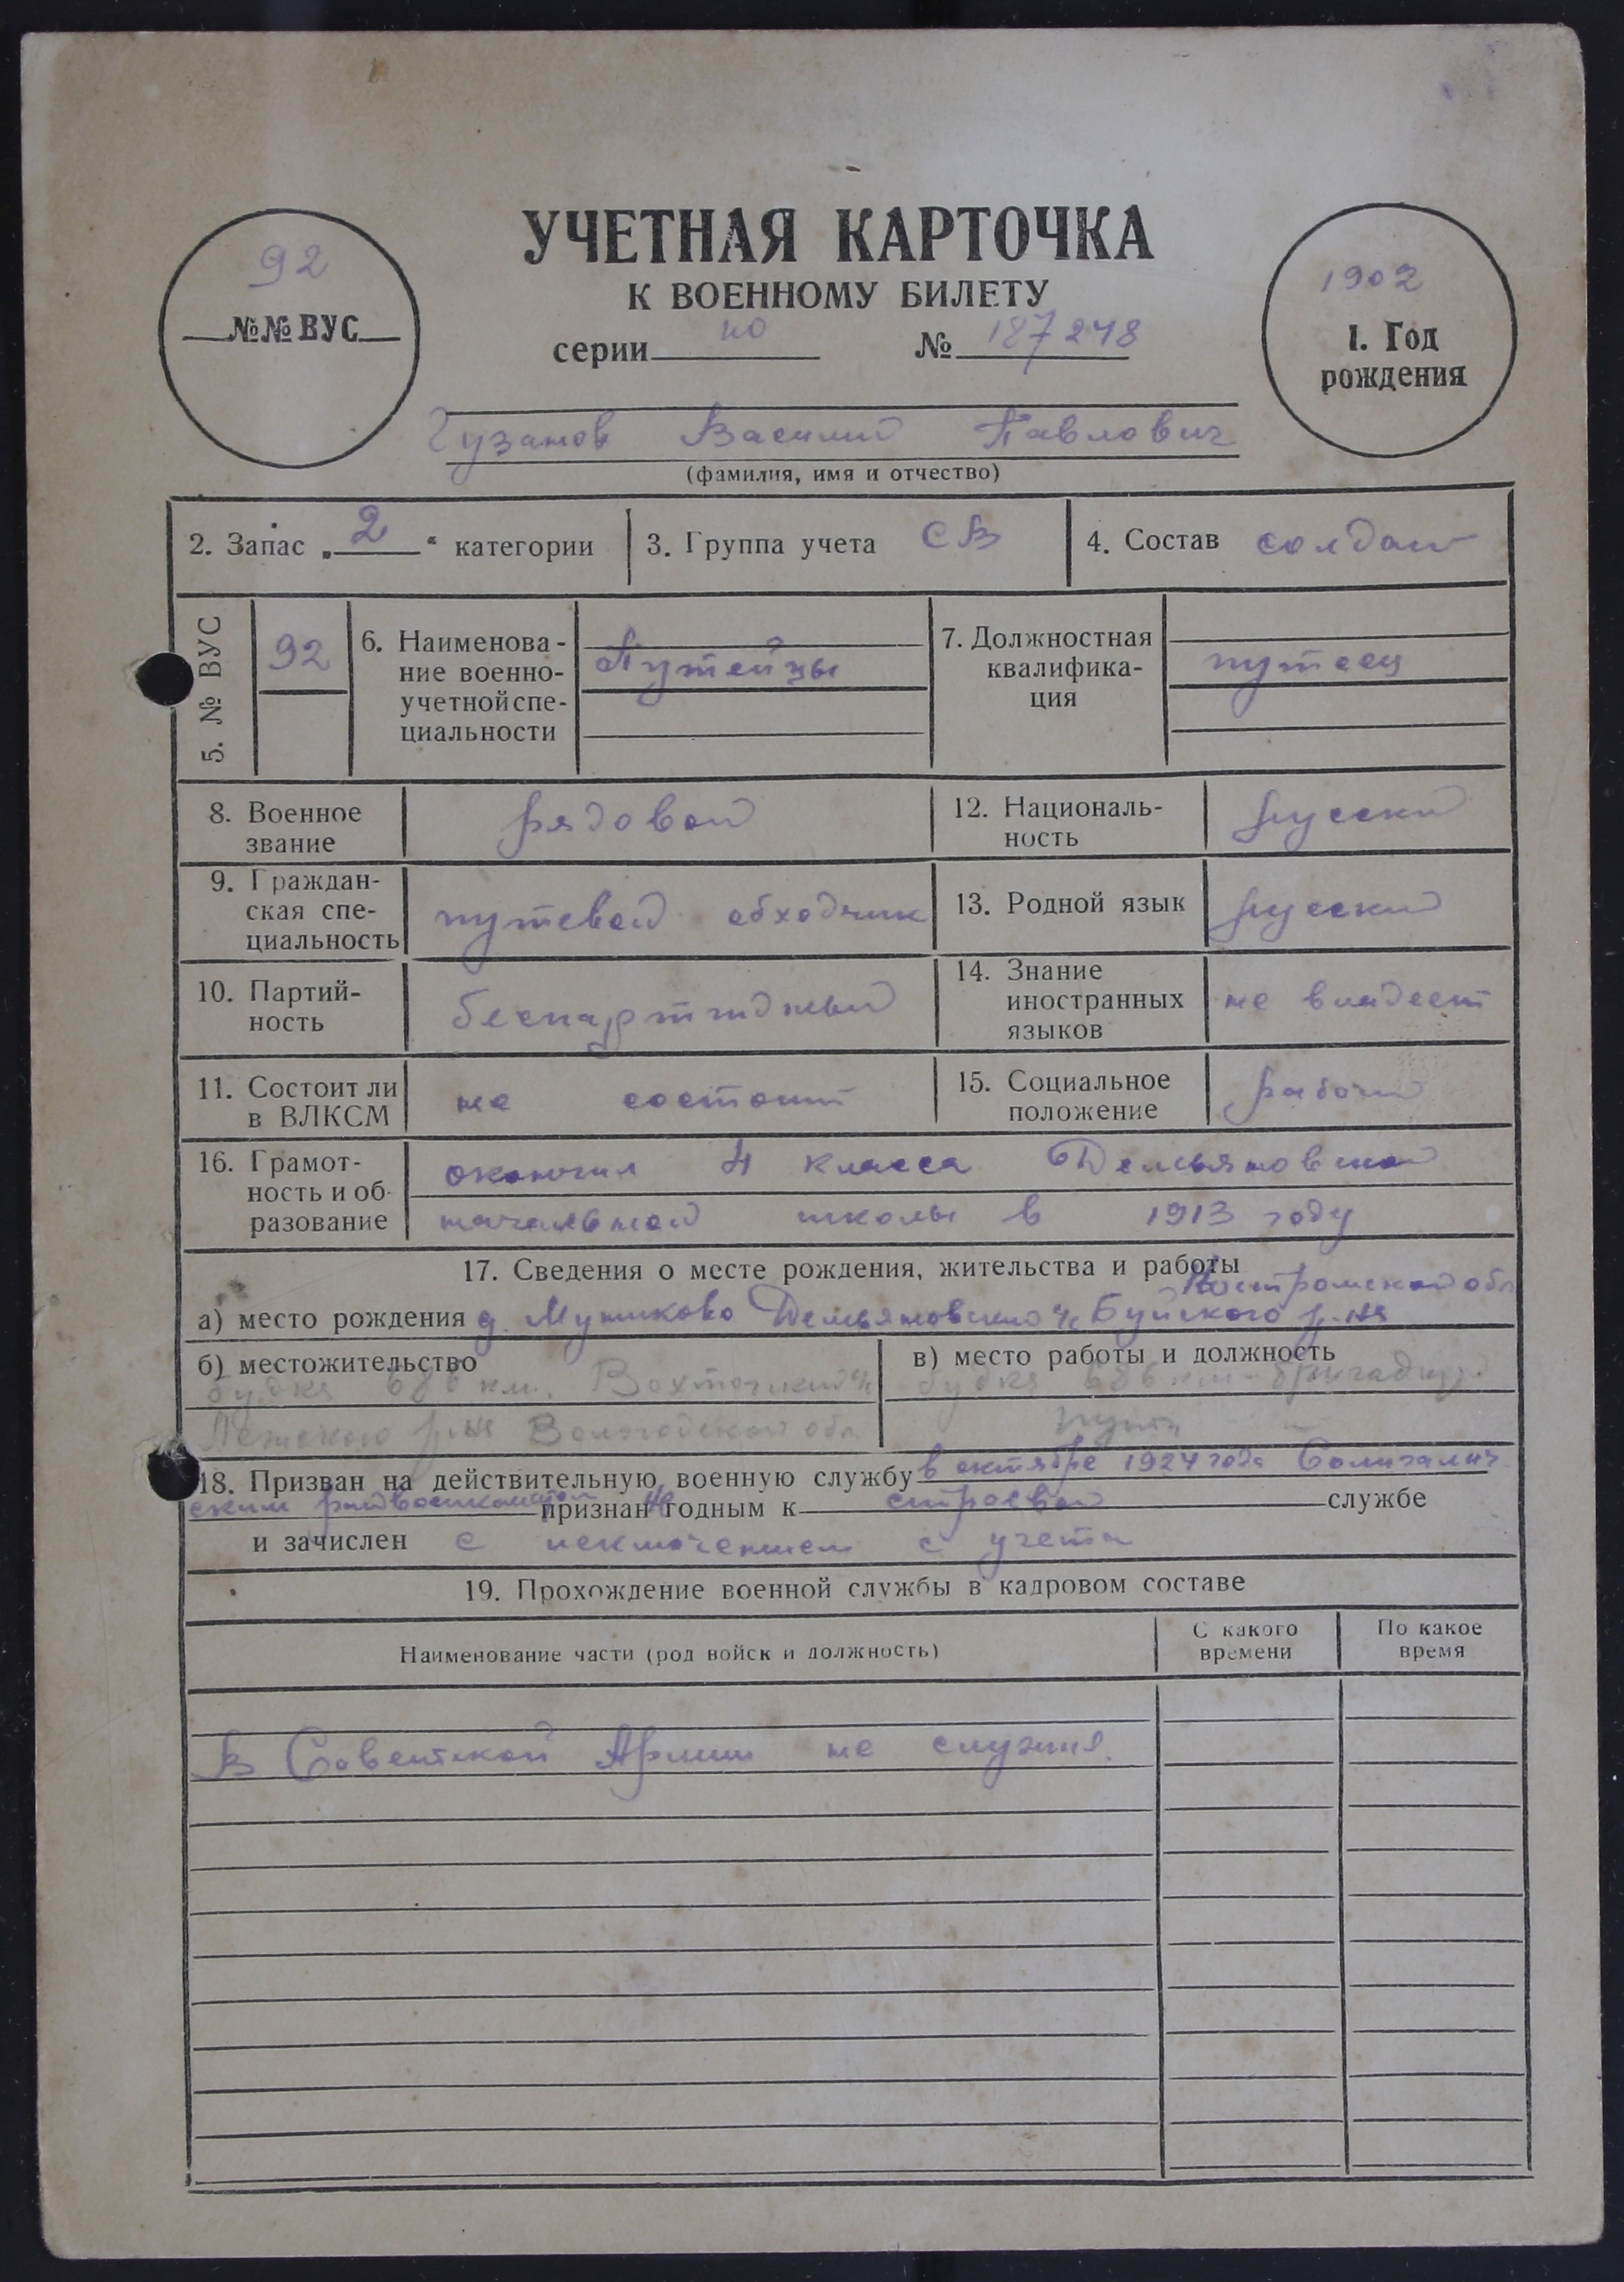 УЧЕТНАЯ КАРТОЧКА
К ВОЕННОМУ БИЛЕТУ
92
№№ ВУС
серии но № 187248
1902
1. Год рождения
Гузанов Василий Павлович
(фамилия, имя и отчество)
2. Запас „2“ категории
3. Группа учета СВ
4. Состав солдат
5. № ВУС
92
6. Наименова-
ние военно-
учетной спе-
циальности
Путейцы
7. Должностная
квалифика-
ция
путеец
8. Военное
звание
рядовой
12. Националь-
ность
русский
9. Граждан-
ская спе-
циальность
путевой обходчик
13. Родной язык
русский
10. Партий-
ность
беспартийный
14. Знание
иностранных
языков
не владеет
11. Состоит ли
в ВЛКСМ
не состоит
15. Социальное
положение
рабочий
16. Грамот-
ность и об-
разование
окончил 4 класса Демьяновской
начальной школы в 1913 году
17. Сведения о месте рождения, жительства и работы
Костромской обл
а) место рождения д. Демьяновского Буйского р-на
б) местожительство
будка 686 км.
р-на Вологодской обл
в) место работы и должность
будка 686 км - бригадир
пути
18. Призван на действительную военную службу в октябре 1924 года Солигалич
ским райвоенкоматом признан не годным к строевой службе
и зачислен с исключением с учета
19. Прохождение военной службы в кадровом составе
Наименование части (род войск и должность)
С какого
времени
По какое
время
В Советской Армии не служил.